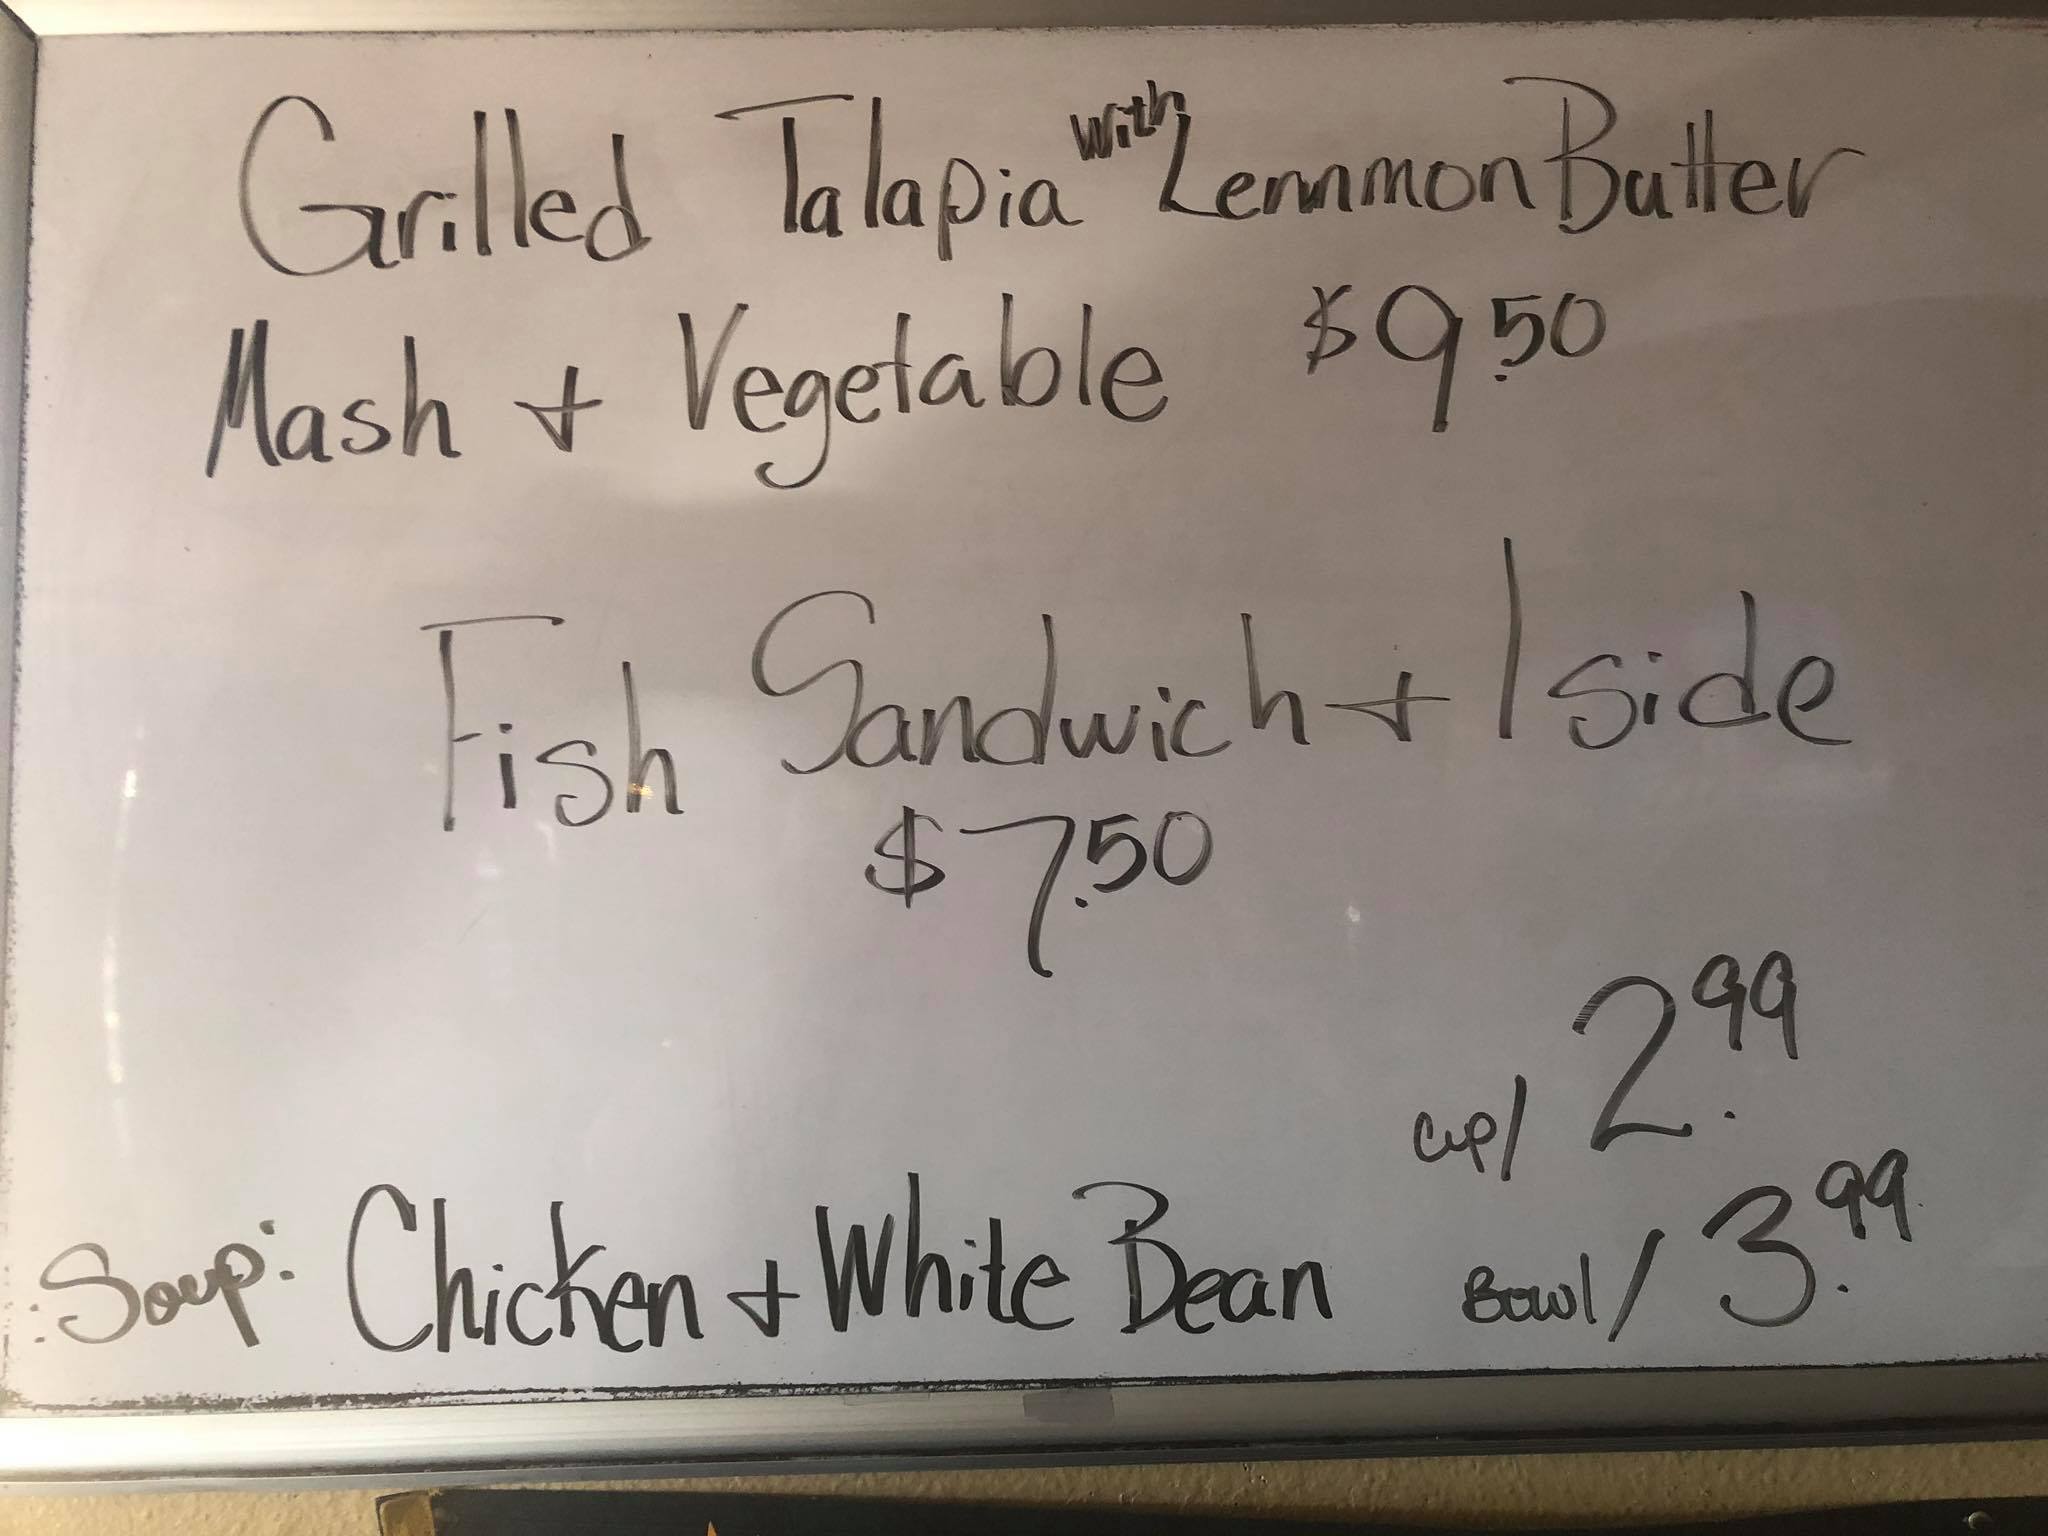 Grilled Talapia with Lemmon Butter
Mash + Vegetable $9.50
Fish Sandwich + 1 side
$7.50
cup/ 2.99
Soup: Chicken + White Bean Bowl/ 3.99